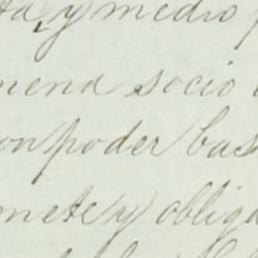 ta, y medio
mena socio
on poder bas
mete y obliga